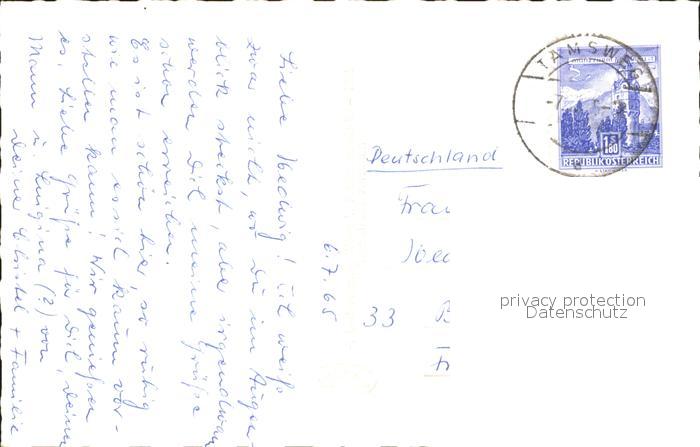 6.7.65
Liebe Hedwig! Ich weiß
zwar nicht, wo Du im Augen-
blick steckst, aber irgendwann
werden Dich meine Grüße
schon erreichen.
Es ist schön hier, so ruhig
wie man es sich kaum vor-
stellen kann! Wir genießen
es. Liebe Grüße für Dich, Deinen
Mann u. Luigina (?) von
Deiner Christel + Familie
TAMSWEG
1.80
REPUBLIK ÖSTERREICH
Deutschland
Frau
33
privacy protection
Datenschutz